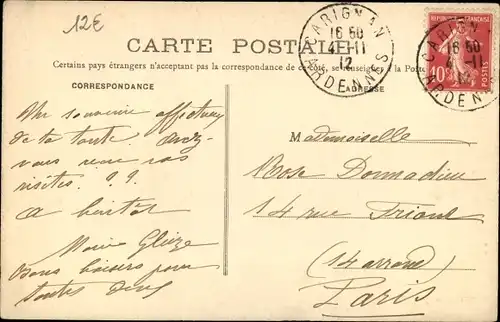 12E
CARTE POSTALE
Certains pays étrangers n'acceptant pas la correspondance de ce côté, se renseigner à la Poste
CORRESPONDANCE
ADRESSE
CARIGNAN
16 50
4-11
12
ARDENNES
RÉPUBLIQUE FRANÇAISE
10c
POSTES
CARIGNAN
16 50
-11
12
ARDENNES
Un souvenir affectueux
de ta tante. Avez-
vous reçu vos
visites. ? ?
à bientôt
Marie Glièze
Bons baisers pour
toutes deux
Mademoiselle
Rose Donnadieu
14 rue
(14 arrond)
Paris